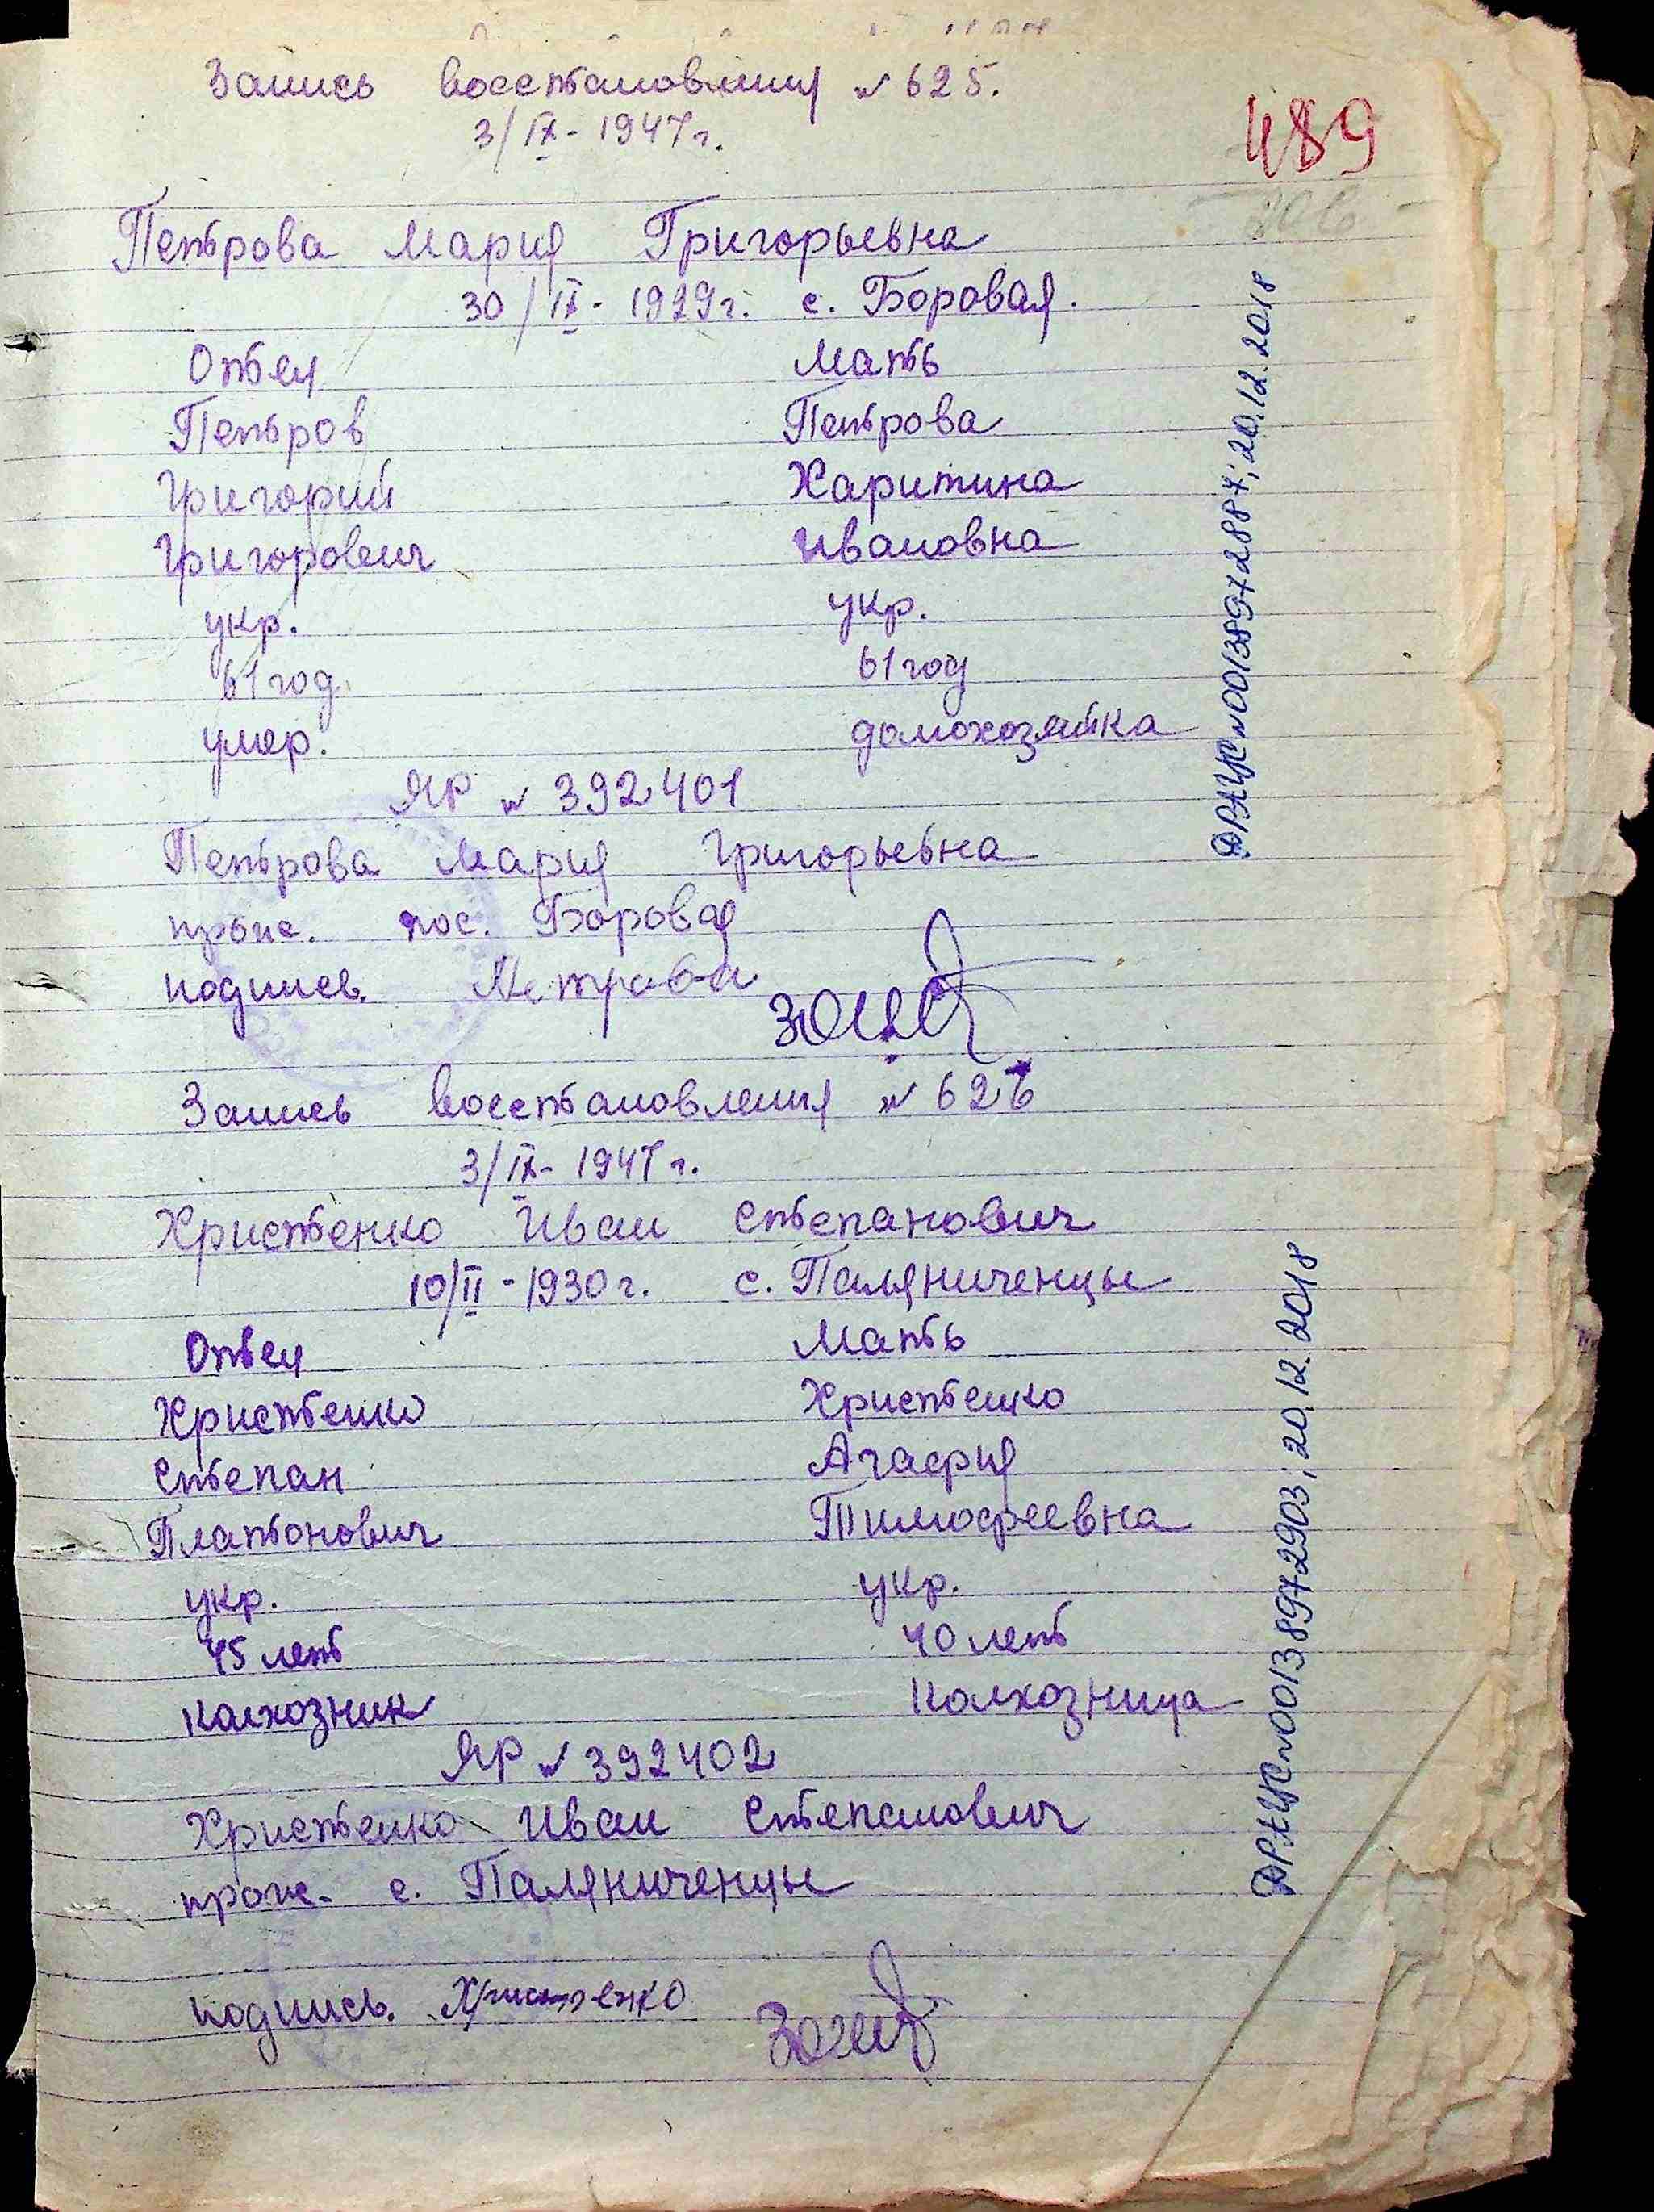 Запись восстановления № 625.
3/IX - 1947 г.
489
Петрова Мария Григорьевна
30/IX - 1929 г. с. Боровая.
Отец Мать
Петров Петрова
Григорий Харитина
Григорович Ивановна
укр. укр.
61 год. 61 год
умер. домохозяйка
ЯР № 392401
Петрова Мария Григорьевна
прож. пос. Боровая
подпись. Петрова
ДРАЦС №00138972887; 20.12.2018
Запись восстановления № 626
3/IX - 1947 г.
Христенко Иван Степанович
10/II - 1930 г. с. Паляниченцы
Отец Мать
Христенко Христенко
Степан Агафия
Платонович Тимофеевна
укр. укр.
45 лет 40 лет
колхозник Колхозница
ЯР № 392402
Христенко Иван Степанович
прож. с. Паляниченцы
подпись. Христенко
ДРАЦС №00138972903; 20.12.2018